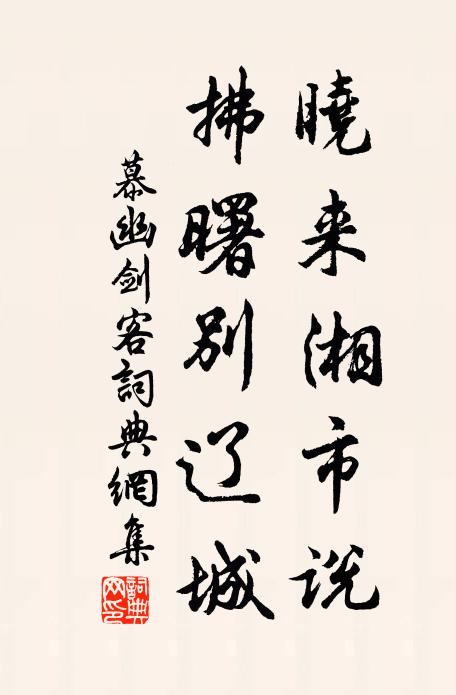 曉来湘市说
拂曙别辽城
慕幽剑客詞典網集
詞典网印